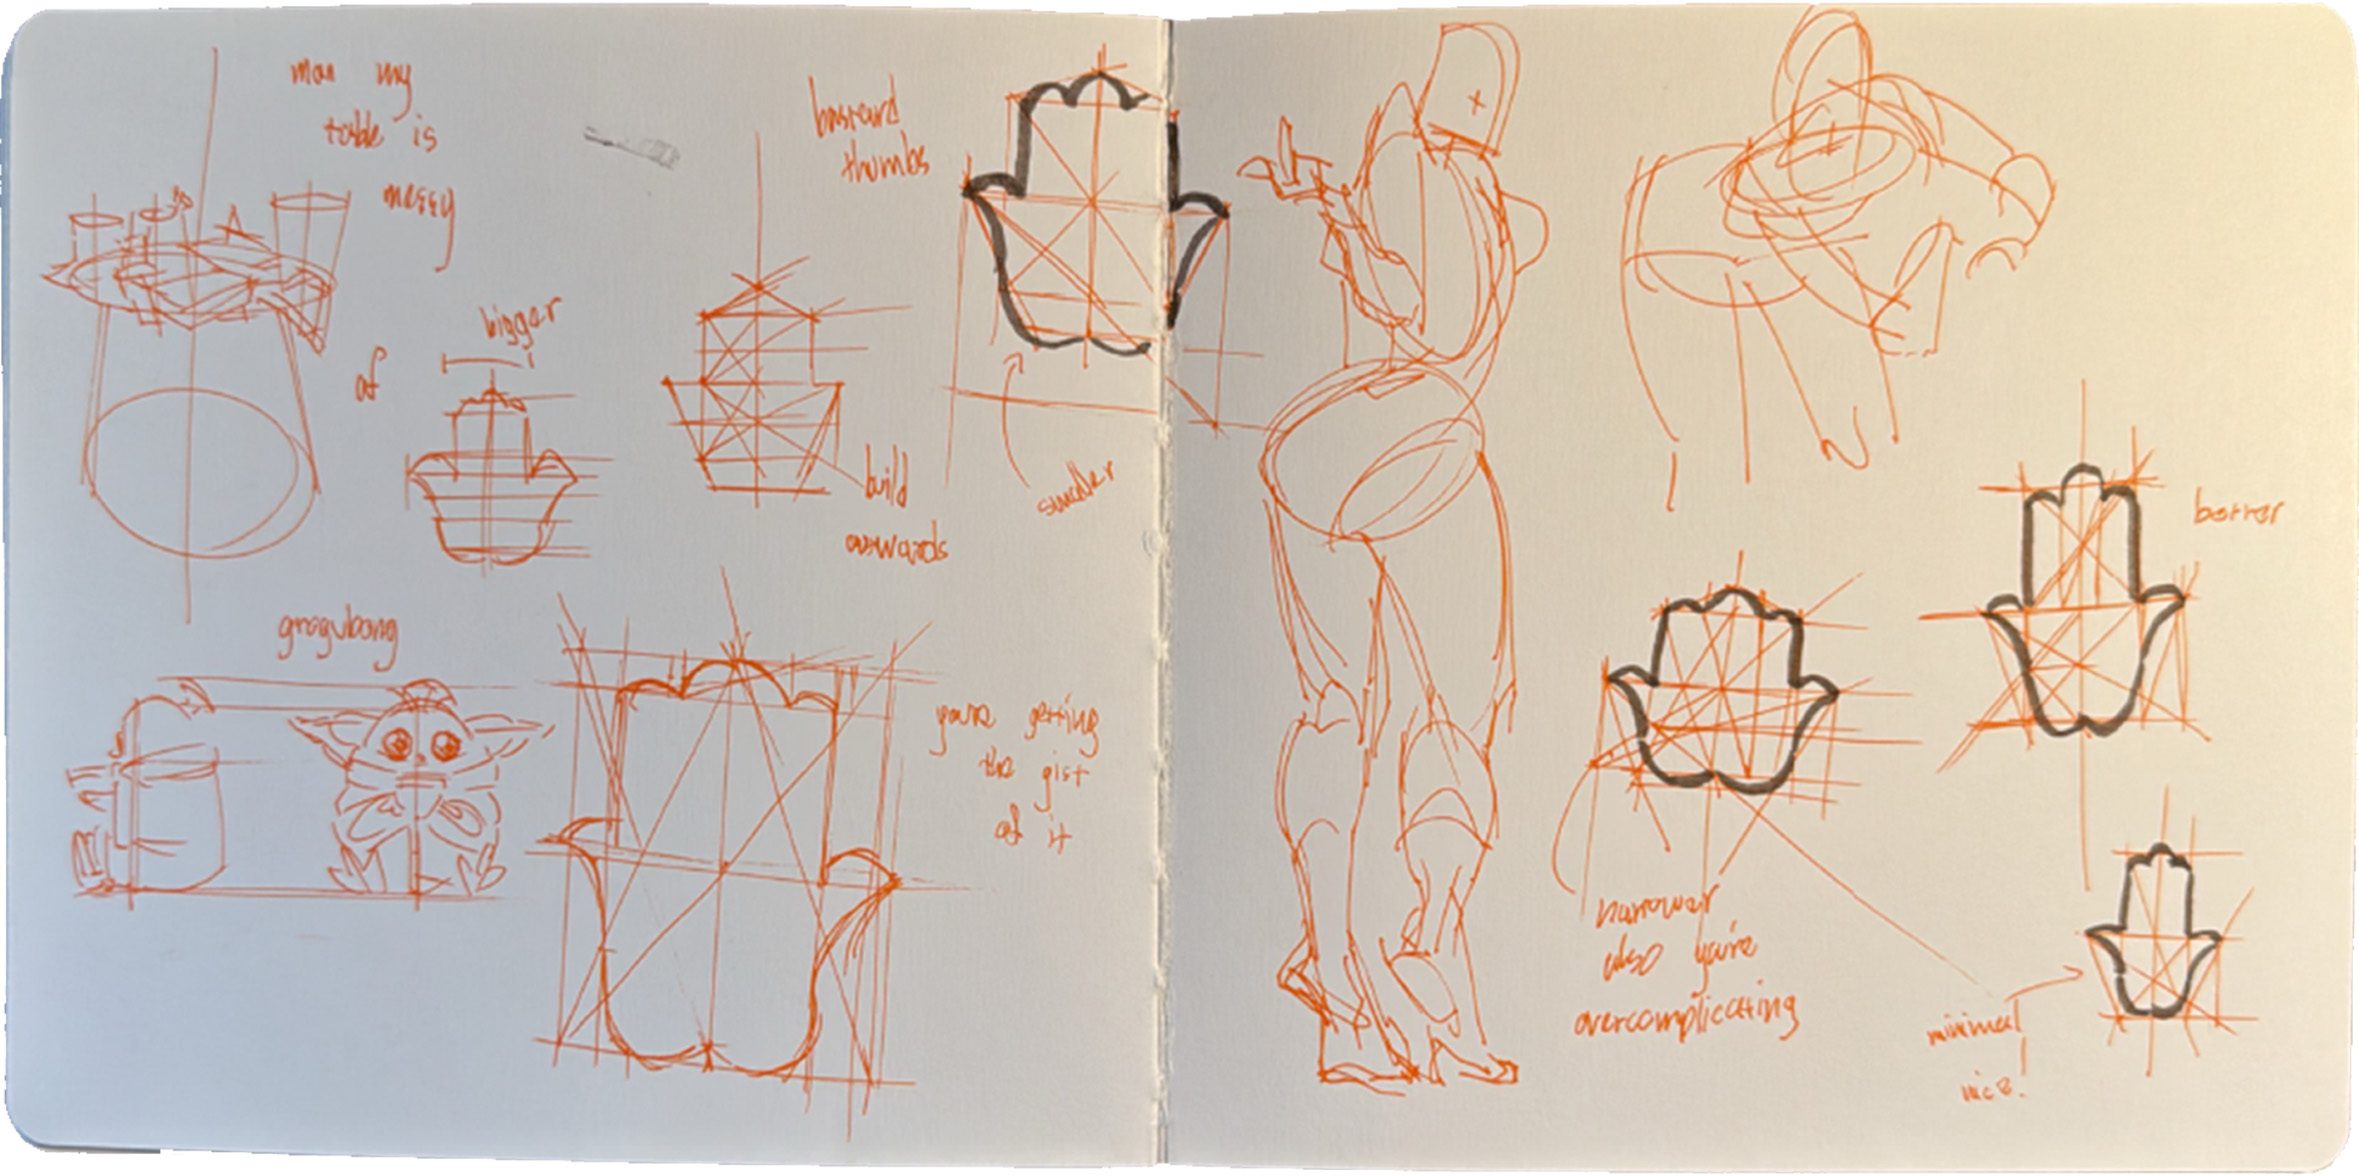 man my
table is
messy
af
bigger
bastard
thumbs
build
outwards
smaller
grogubong
you're getting
the gist
of it
better
narrower
also you're
overcomplicating
minimal
nice.